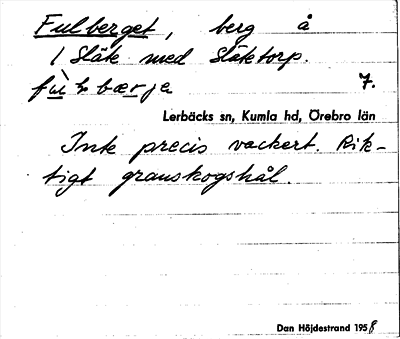 Fulberget, berg å
1 Släte med Slätetorp.
fùɫbærja 7.
Lerbäcks sn, Kumla hd, Örebro län
Inte precis vackert. Rik-
tigt granskogshål.
Dan Höjdestrand 1958